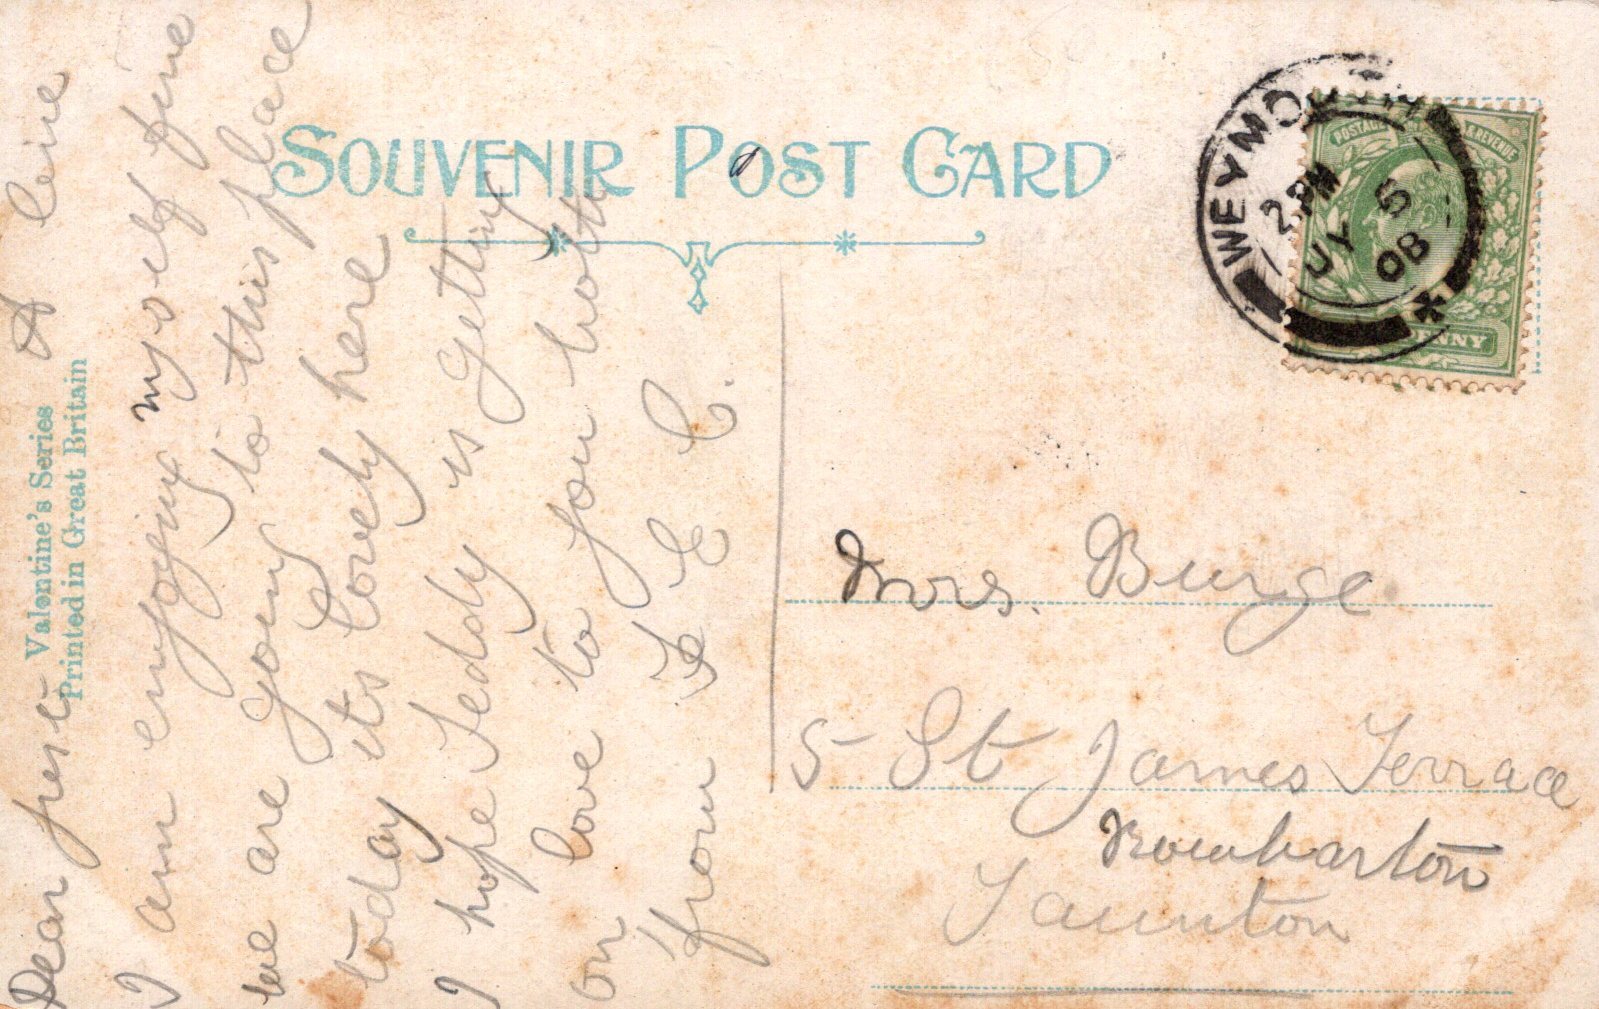 SOUVENIR POST CARD
Valentine's Series
Printed in Great Britain
WEYMOUTH
2 PM
JY 5
08
POSTAGE & REVENUE
PENNY
Dear
A line
I am enjoying myself fine
we are going to this place
today its lovely here
I hope Teddy is getting
on love to you both
from F E C.
Mrs. Burge
5 St James Terrace
Rowbarton
Taunton